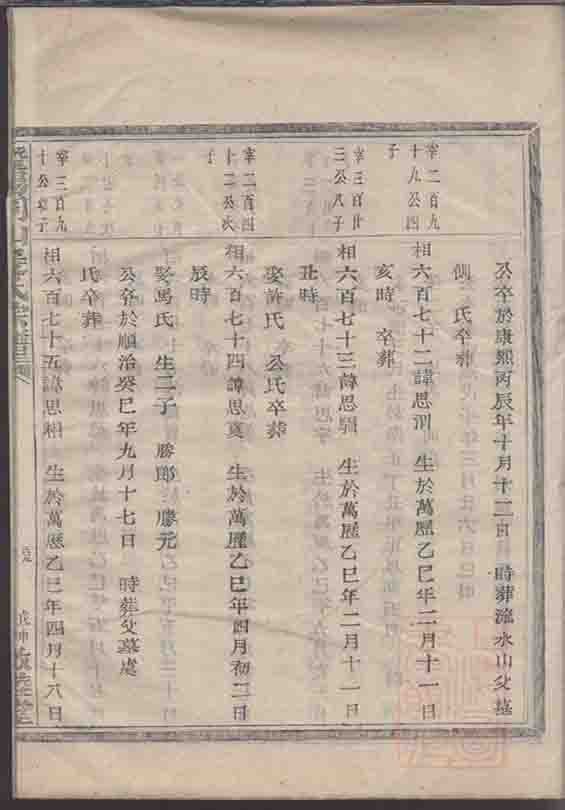 公卒於康熙丙辰年十月十二日 時葬流水山父墓
側 氏卒葬
宰二百九
十九公四
子
相六百七十二諱思 生於萬歷乙巳年二月十一日
亥時 卒葬
宰三百廿
三公八子
相六百七十三諱思 生於萬歷乙巳年二月十一日
丑時
娶許氏 公氏卒葬
宰二百四
十二公次
子
相六百七十四諱思 生於萬歷乙巳年四月初二日
辰時
娶馬氏 生二子 勝郎 勝元
公卒於順治癸巳年九月十七日 時葬父墓處
氏卒葬
宰三百九
十公 子
相六百七十五諱思相 生於萬歷乙巳年四月十八日
氏宗譜